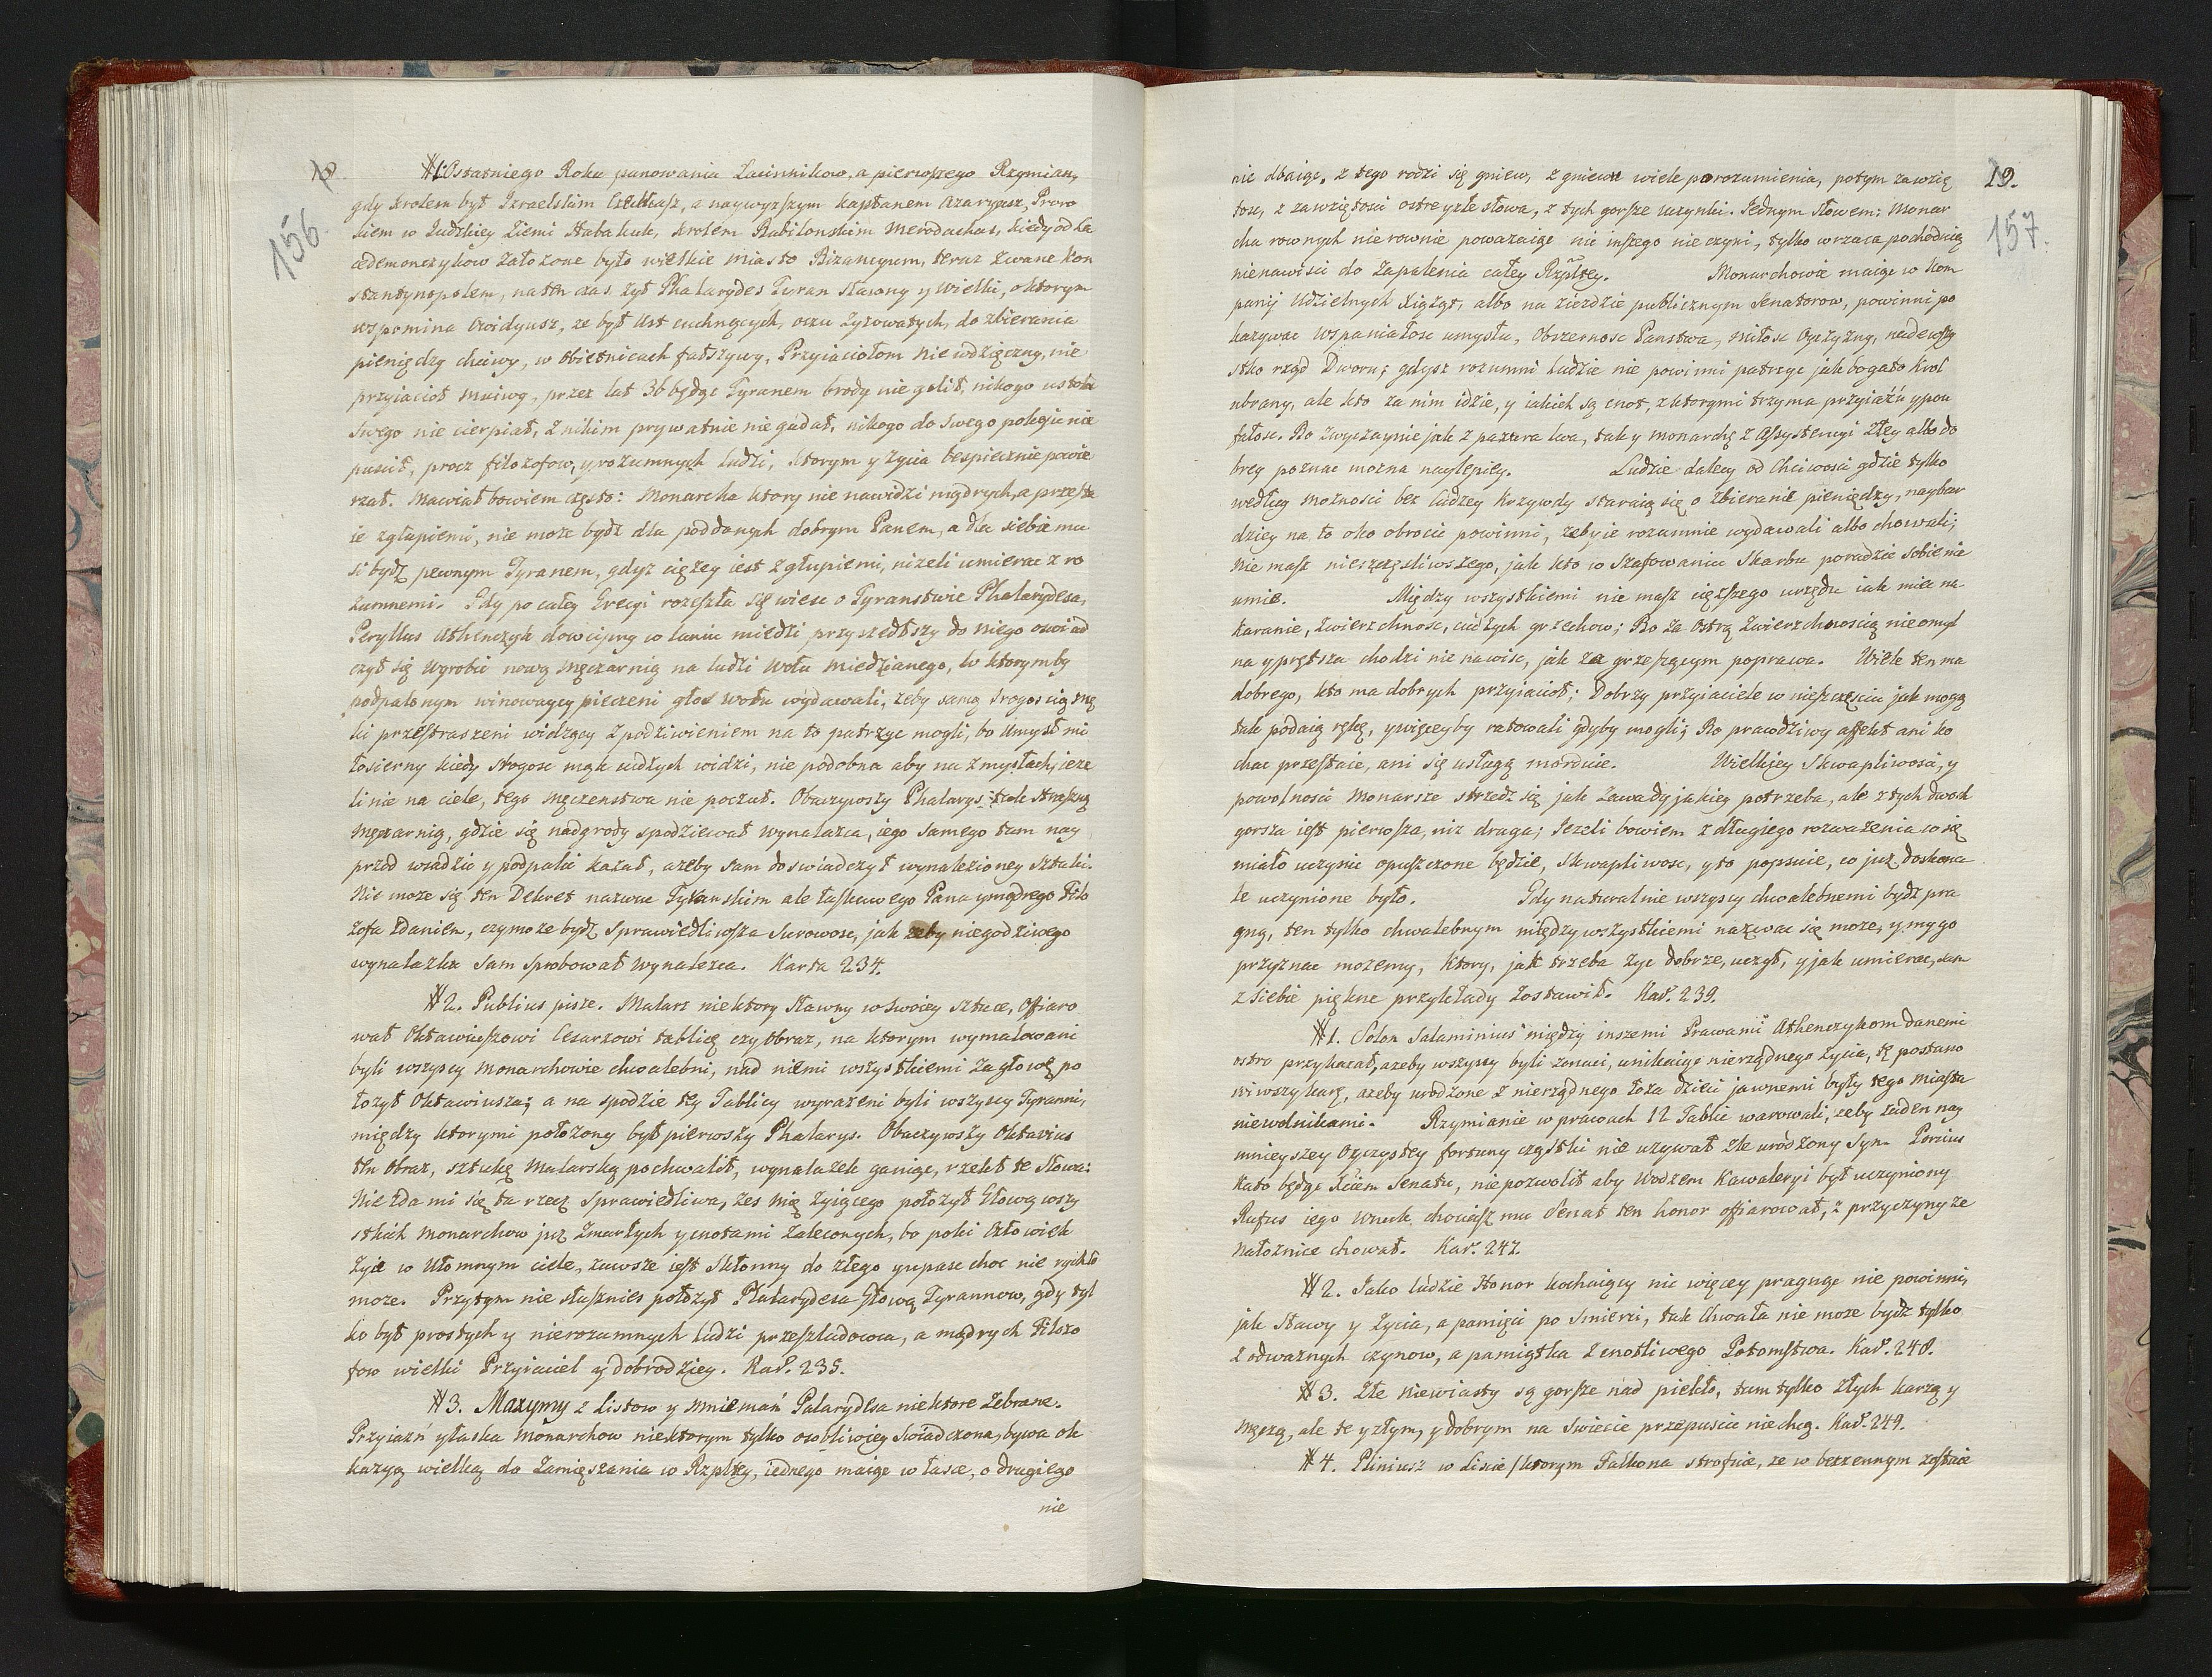 18
156
#1. Ostatniego Roku panowania Łacinnikow, a pierwszego Rzymian,
gdy krolem był Izraelskim Ezekiasz, a naywyzszym kapłanem Azaryasz, Proro
kiem w Judzkiey Ziemi Habakuk, krolem Babilonskim Merodachas, kiedy od La
cedemonczykow załozone było wielkie miasto Bizancyum, teraz zwane Kon
stantynopolem, na ten czas zył Phalarydes Tyran sławny y wielki, o ktorym
wspomina Owidyusz, ze był ust cuchnących, oczu zyzowatych, do zbierania
pieniędzy chciwy, w obietnicach fałszywy, Przyiaciołom niewdzięczny, nie
przyiacioł msciwy, przez lat 36 będąc Tyranem brody nie golił, nikogo u stołu
swego nie cierpiał, z nikim prywatnie nie gadał, nikogo do swego pokoju nie
puscił, procz filozofow, y rozumnych ludzi, ktorym y zycia bespiecznie powie
rzał. Mawiał bowiem często: Monarcha ktory nie nawidzi mądrych, a przesta
ie z głupiemi, nie moze bydz dla poddanych dobrym Panem, a dla siebie mu
si bydz pewnym Tyranem, gdyz cięzey iest z głupiemi, nizeli umierac z ro
zumnemi. Gdy po całey Grecyi rozeszła się wiesc o Tyranstwie Phalarydesa,
Peryllus Athenczyk dowcipny w laniu miedzi przyszedłszy do niego oswiad
czył się wyrobic nową męczarnią na ludzi wołu miedzianego, w ktorymby
podpalonym winowaycy pieczeni głos wołu wydawali, zeby samą srogoscią mę
ki przestraszeni widzący z podziwieniem na to patrzyc mogli, bo umysł mi
łosierny kiedy srogosc mąk cudzych widzi, nie podobna aby na zmysłach, ieze
li nie na ciele, tego męczenstwa nie poczuł. Obaczywszy Phalarys tak straszną
męczarnią, gdzie się nadgrody spodziewał wynalazca, iego samego tam nay
przod wsadzic y podpalic kazał, azeby sam doswiadczył wynalezioney sztuki.
Nie moze się ten Dekret nazwac Tyranskim ale łaskawego Pana y mądrego Filo
zofa zdaniem, czy moze bydz sprawiedliwsza surowosc, jak zeby niegodziwego
wynalazku sam sprobował wynalezca. Karta 234.
#2. Publius pisze. Malarz niektory sławny w swoiey sztuce, offiaro
wał Oktawiuszowi Cesarzowi tablicę czy obraz, na ktorym wymalowani
byli wszyscy Monarchowie chwalebni, nad niemi wszystkiemi za głowę po
łozył Oktawiusza; a na spodzie tey Tablicy wyrazeni byli wszyscy Tyranni,
między ktorymi połozony był pierwszy Phalarys. Obaczywszy Oktavius
ten obraz, sztukę malarską pochwalił, wynalazek ganiąc, rzekł te słowa:
Nie zda mi się ta rzecz sprawiedliwa, zes mię zyiącego połozył Głową wszy
stkich Monarchow juz zmarłych y cnotami zaleconych, bo poki człowiek
zyie w ułomnym ciele, zawsze iest skłonny do złego y upasc choc nie rychło
moze. Przytym nie słusznies połozył Phalarydesa Głową Tyrannow, gdy tyl
ko był prostych y nierozumnych ludzi przeszladowca, a mądrych Filozo
fow wielki Przyiaciel y dobrodziey. Kar. 235.
#3. Maxymy z Listow y mniemań Palarydesa niektore zebrane.
Przyiaźń y łaska Monarchow niektorym tylko osobliwiey swiadczona, bywa ok
kazyą wielką do zamięszania w Rzpltey, iednego maiąc w łasce, o drugiego
nie
19.
157.
nie dbaiąc, z tego rodzi się gniew, z gniewu wiele porozumienia, potym zawzię
tosc, z zawziętosci ostre y złe słowa, z tych gorsze uczynki. Jednym słowem: Monar
cha rownych nie rownie powazaiąc nic inszego nie czyni, tylko wrzaca pochodnią
nienawisci do zapalenia całey Rzpltey. Monarchowie maiąc w kom
panij udzielnych Xiążąt, albo na zieździe publicznym Senatorow, powinni po
kazywac wspaniałosc umysłu, obszernosc Panstwa, miłosc Oyczyzny, nadewszy
stko rząd Dworu; gdysz rozumni ludzie nie powinni patrzyc jak bogato Krol
ubrany, ale kto za nim idzie, y iakich są cnot, z ktorymi trzyma przyiaźń y pou
fałosc. Bo zwyczaynie jak z pazura lwa, tak y monarchę z assystencyi złey albo do
brey poznac mozna naylepiey. Ludzie dalecy od Chciwosci gdzie tylko
według moznosci bez cudzey krzywdy staraią się o zbieranie pieniędzy, naybar
dziey na to oko obrocic powinni, zeby ie rozumnie wydawali albo chowali;
nie masz nieszczęsliwszego, jak kto w szafowaniu skarbu poradzic sobie nie
umie. Między wszystkiemi nie masz cięzszego urzędu iak miec na
karanie, zwierzchnosc, cudzych grzechow; Bo za ostrą zwierzchnoscią nieomyl
na y prętsza chodzi nie nawisc, jak za grzeszącym poprawa. Wiele ten ma
dobrego, kto ma dobrych przyiacioł; Dobrzy przyiaciele w nieszczęsciu jak mogą
tak podaią rękę, y więceyby ratowali gdyby mogli; Bo prawdziwy affekt ani ko
chac przestaie, ani się usługą morduie. Wielkiey Skwapliwosci, y
powolnosci Monarsze strzedz się jak zawady jakiey potrzeba, ale z tych dwoch
gorsza iest pierwsza, niz druga; Jezeli bowiem z długiego rozwazenia co się
miało uczynic opuszczone będzie, skwapliwosc, y to popsuie, co juz doskona
le uczynione było. Gdy naturalnie wszyscy chwalebnemi bydz pra
gną, ten tylko chwalebnym między wszystkiemi nazwac się moze, y my go
przyznac mozemy, ktory, jak trzeba zyc dobrze, uczył, y jak umierac, sam
z siebie piękne przykłady zostawił. Kar. 239.
#1. Solon Salaminius między inszemi Prawami Athenczykom danemi
ostro przykazał, azeby wszyscy byli zonaci, unikaiąc nierządnego zycia, tę postano
wiwszy karę, azeby urodzone z nierządnego łoza dzieci jawnemi były tego miasta
niewolnikami. Rzymianie w prawach 12 Tablic warowali, zeby zaden nay
mnieyszey Oyczystey fortuny cząstki nie uzywał zle urodzony Syn. Porcius
Kato będąc Xciem Senatu, nie pozwolił aby Wodzem Kawaleryi był uczyniony
Rufus iego Wnuk, chociasz mu Senat ten honor offiarował, z przyczyny ze
nałoznice chował. Kar. 247.
#2. Jako ludzie Honor kochaiący nic więcey pragnąc nie powinni,
jak sławy y zycia, a pamięci po smierci, tak Chwała nie moze bydz tylko
z odwaznych czynow, a pamiątka z cnotliwego Potomstwa. Kar. 248.
#3. Złe niewiasty są gorsze nad piekło, tam tylko złych karzą y
męczą, ale te y złym, y dobrym na swiecie przepuscic niechcą. Kar. 249.
#4. Pliniusz w liscie /ktorym Falkona strofuie, ze w bezzennym zostaie